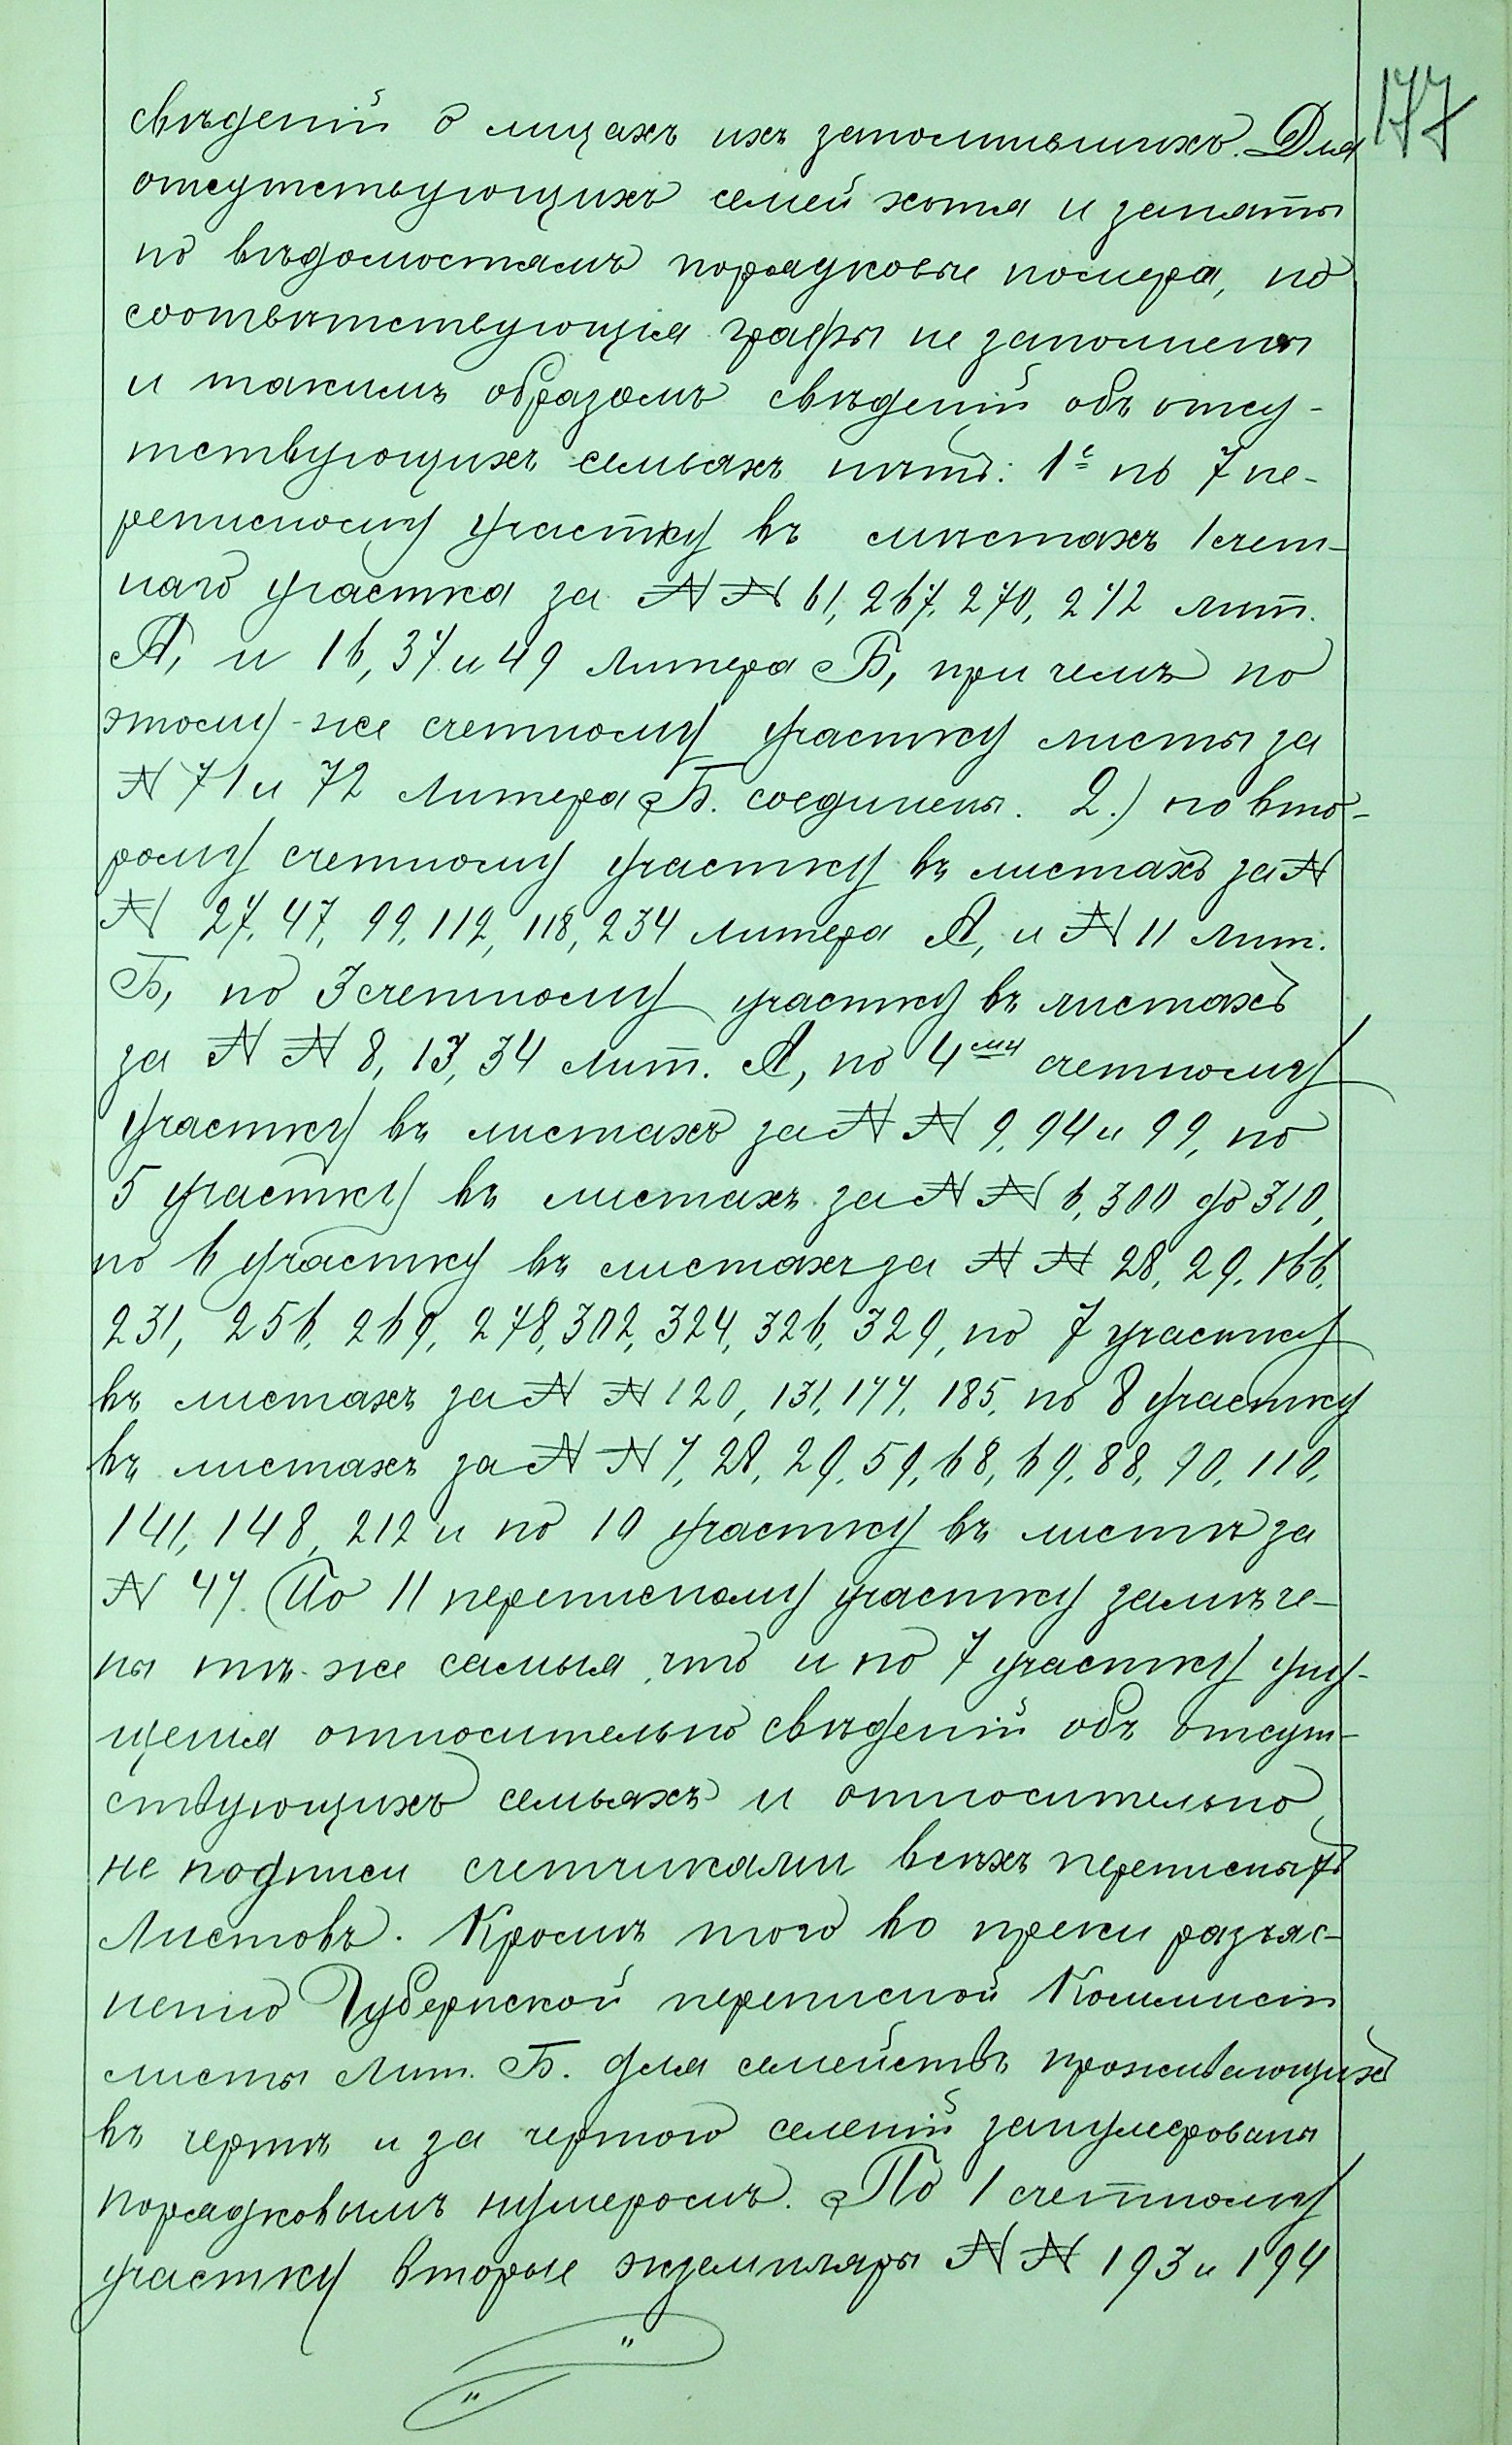 177
свѣденій о лицахъ ихъ заполнившихъ. Для
отсутствующихъ семей хотя и заняты
по вѣдомостямъ порядковые номера, но
соотвѣтствующія графы не заполнены
и такимъ образомъ свѣденій объ отсу-
тствующихъ семьяхъ нѣтъ: 1е по 7 пе-
реписному участку въ листахъ 1 счет-
наго участка за № № 61, 267, 270, 272 лит.
А, и 16, 37 и 49 литера Б, при чемъ по
этому-же счетному участку листы за
№ 71 и 72 литера Б. соединены. 2.) по вто-
рому счетному участку въ листахъ за №
№ 27, 47, 99, 112, 118, 234 литера А, и № 11 лит.
Б, по 3 счетному участку въ листахъ
за № № 8, 13, 34 лит. А, по 4му счетному
участку въ листахъ за № № 9, 94 и 99, по
5 участку въ листахъ за № № 6, 300 до 310,
по 6 участку въ листахъ за № № 28, 29, 166,
231, 256, 269, 278, 302, 324, 326, 329, по 7 участку
въ листахъ за № № 120, 131, 177, 185, по 8 участку
въ листахъ за № № 7, 28, 29, 59, 68, 69, 88, 90, 110,
141, 148, 212 и по 10 участку въ листѣ за
№ 47. По 11 переписному участку замѣче-
ны тѣ-же самыя что и по 7 участку упу-
щенія относительно свѣденій объ отсут-
ствующихъ семьяхъ и относительно
не подписи счетчиками всѣхъ переписныхъ
листовъ. Кромѣ того во преки разъяс-
ненію Губернской переписной Коммисіи
листы Лит. Б. для семействъ проживающихъ
въ чертѣ и за чертою селеній занумерованы
порядковымъ нумеромъ. По 1 счетному
участку вторые экземпляры № № 193 и 194